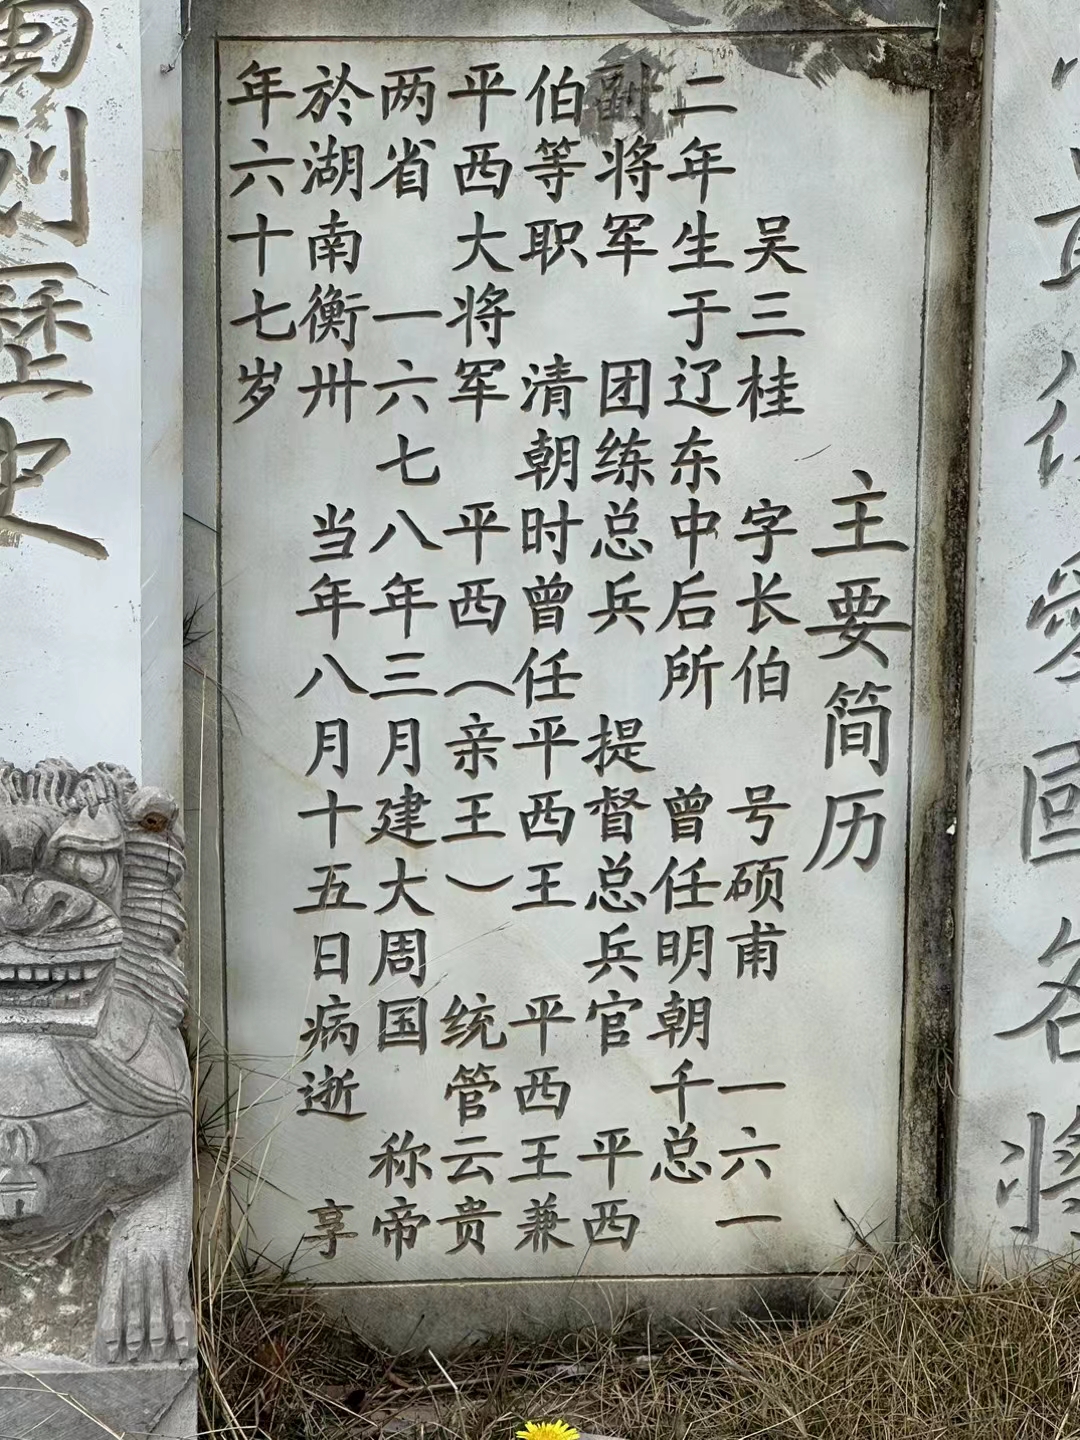 主要简历
吴三桂 字长伯 号硕甫 一六一
二年生于辽东中后所 曾任明朝千总
副将军 团练总兵 提督总兵官 平西
伯等职 清朝时曾任平西王 平西王兼
平西大将军 平西（亲王） 统管云贵
两省 一六七八年三月建大周国 称帝
於湖南衡卅 当年八月十五日病逝 享
年六十七岁
愛國名將
歷史